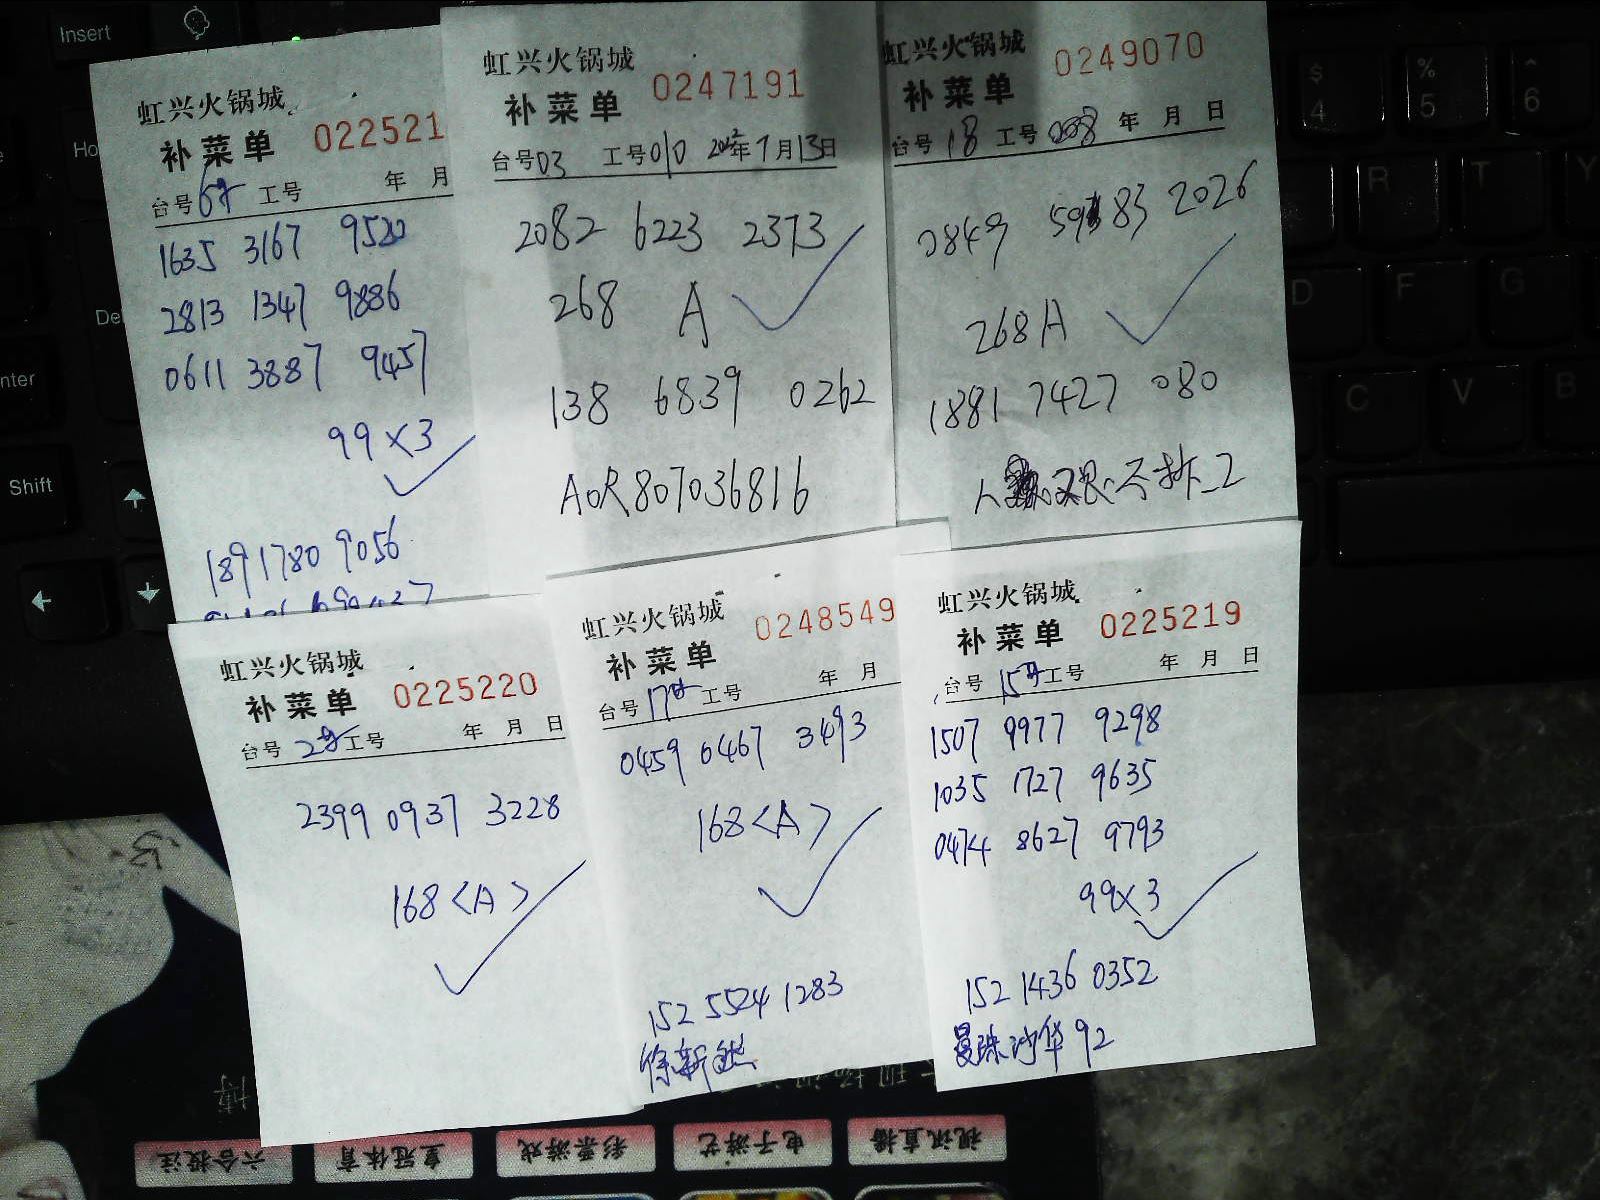 虹兴火锅城
补菜单 022521
台号 工号 年 月
1635 3167 9520
2813 1347 9886
0611 3887 9457
99×3
1891780 9056
虹兴火锅城
补菜单 0247191
台号03 工号010 2012年7月13日
2082 6223 2373
268 A
138 6839 0262
AOR807036816
虹兴火锅城
补菜单 0249070
台号 18 工号 008 年 月 日
0849 83 2026
268A
1881 7427 080
虹兴火锅城
补菜单 0225220
台号 2号 工号 年 月 日
2399 0937 3228
168<A>
虹兴火锅城
补菜单 0248549
台号 17号 工号 年 月
0459 0467 3493
168<A>
152 5524 1283
徐新
虹兴火锅城
补菜单 0225219
台号 15号 工号 年 月 日
1507 9977 9298
1035 1727 9635
0474 8627 9793
99×3
152 1436 0352
92
Insert
Shift
$ 4
% 5
^ 6
R T Y
D F G
C V B
六合投注 皇冠体育 彩票游戏 电子游艺 视讯直播